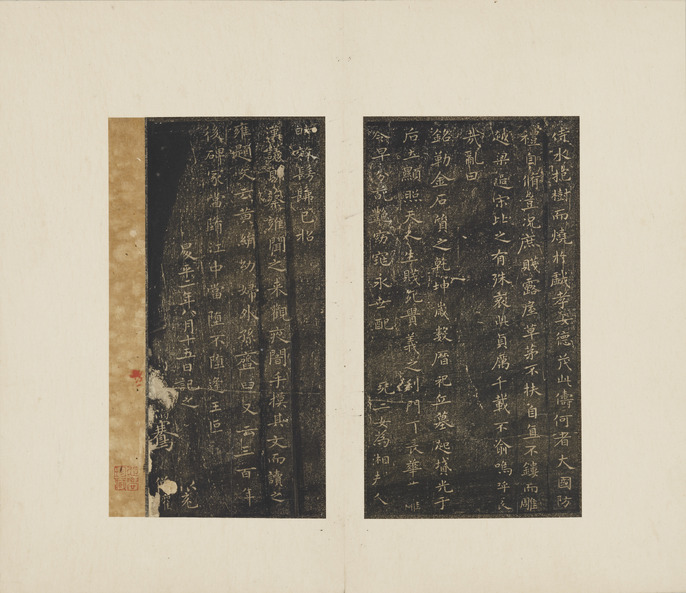 待水抱樹而燒於戲孝女德茂此儔何者大國防
禮自脩豈況庶賤露屋草茅不扶自直不鏤而雕
越梁過宋比之有殊哀此貞厲千載不渝嗚呼哀
哉亂曰
銘勒金石質之乾坤歲數曆祀丘墓起墳光于
后土顯照天人生賤死貴義之利門丁長華
令早分葩艷窈窕永世配 死二女為湘夫人
時效髣髴已招
漢議郎蔡雍聞之來觀夜闇手摸其文而讀之
雍題文云黃絹幼婦外孫䪡臼又云三百年
後碑冢當墮江中當墮不墮逢王叵
昇平二年八月十五日記之